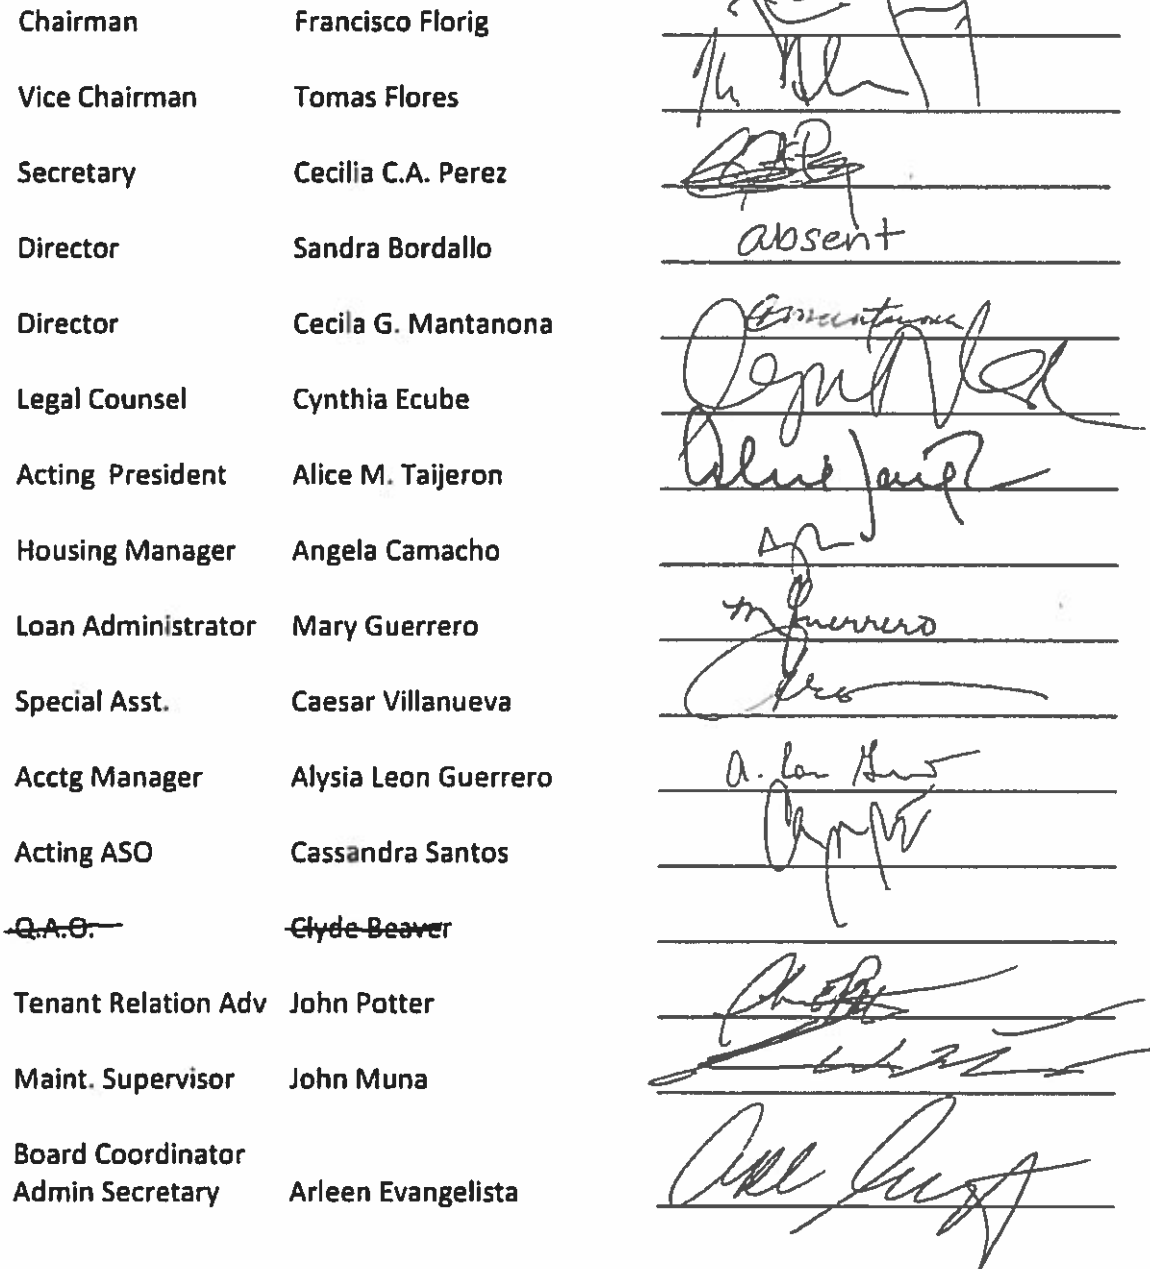 Chairman Francisco Florig
Vice Chairman Tomas Flores
Secretary Cecilia C.A. Perez
Director Sandra Bordallo absent
Director Cecila G. Mantanona
Legal Counsel Cynthia Ecube
Acting President Alice M. Taijeron
Housing Manager Angela Camacho
Loan Administrator Mary Guerrero M Guerrero
Special Asst. Caesar Villanueva
Acctg Manager Alysia Leon Guerrero
Acting ASO Cassandra Santos
Q.A.O. Clyde Beaver
Tenant Relation Adv John Potter
Maint. Supervisor John Muna
Board Coordinator
Admin Secretary Arleen Evangelista